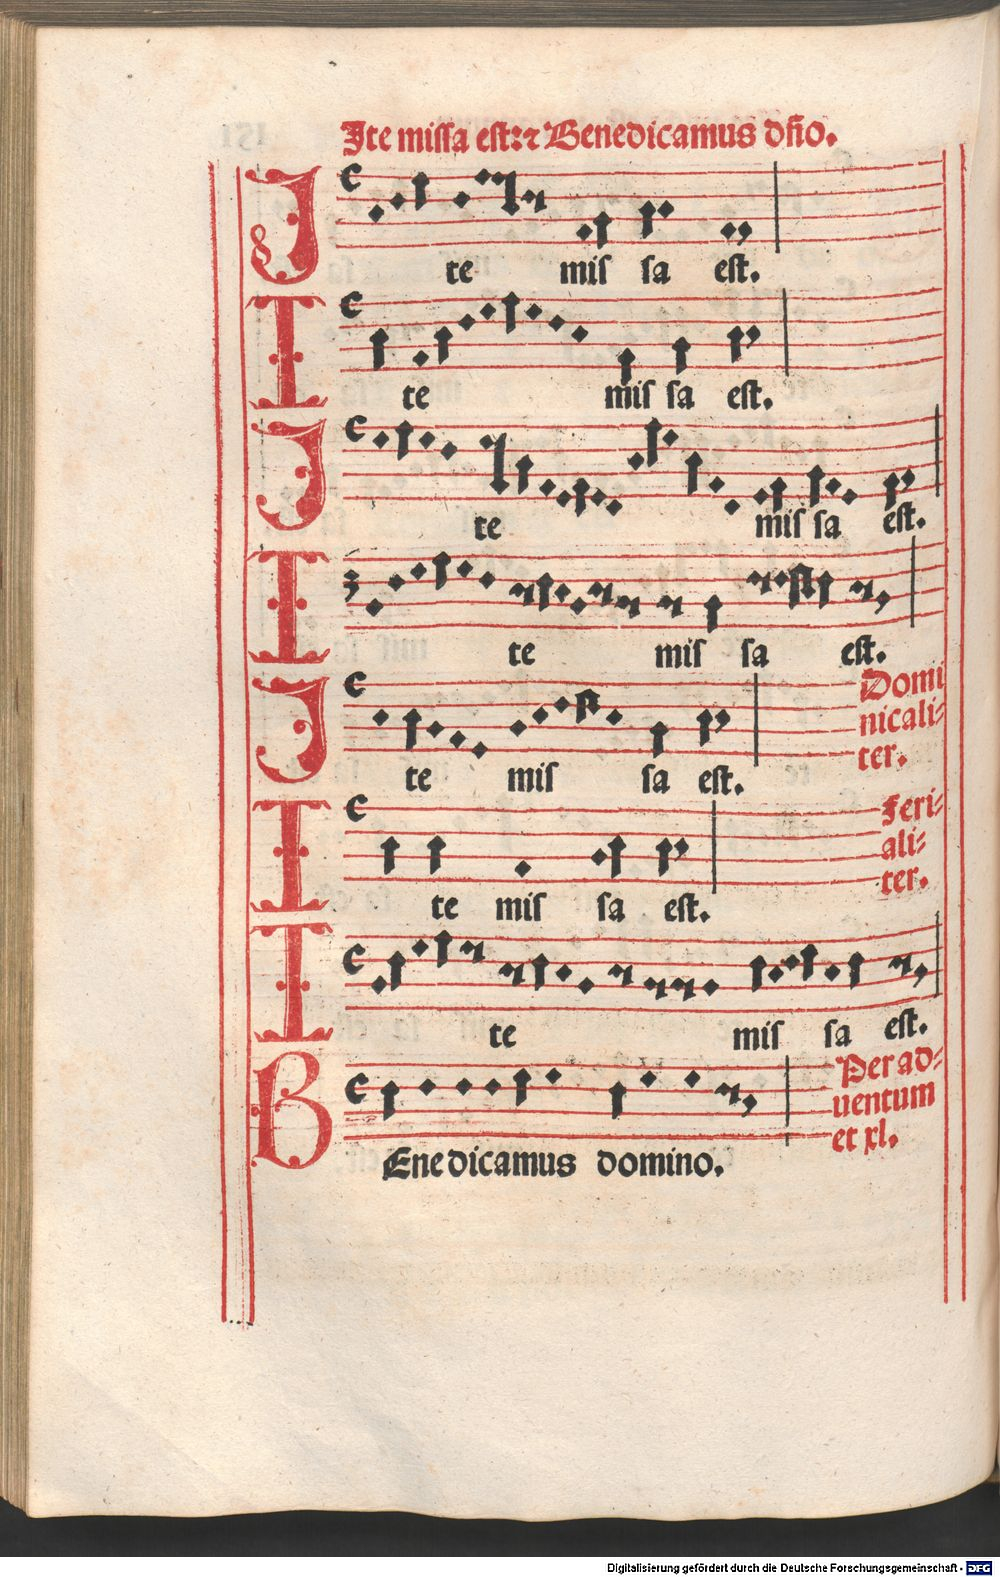 Ite missa est: ⁊ Benedicamus dn̄o.
I te mis sa est.
I te mis sa est.
I te mis sa est.
I te mis sa est.
Domi
nicali⸗
ter.
I te mis sa est.
Feri⸗
ali⸗
ter.
I te mis sa est.
I te mis sa est.
Per ad⸗
uentum
et xl.
BEnedicamus domino.
Digitalisierung gefördert durch die Deutsche Forschungsgemeinschaft - DFG